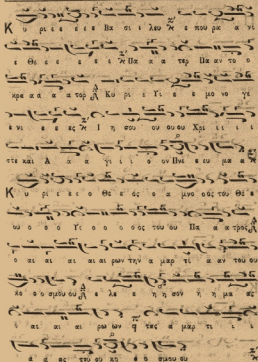 Κ υ ρι ε ε ε ε Βα σι λευ ε που ρα α νι
ε Θε ε ε ε ε Πα α α τερ Παν το ο
κρα α α α τορ Κυ ρι ε Υι ε ε μο νο γε
ε νι ε ε ες Ι η σου ου ου ου Χρι ι ι ι
στε και Α α α γι ι ι ον Πνε ε ευ μα α
Κ υ ρι ε ε ε ο Θε ε ος ο α μνο ο ος του Θε ε
ου ο ο ο Υι ο ο ο ος του ου Πα α α τρος
ο αι αι αι αι αι ρων την α μαρ τι αν του ου
κο ο ο σμου ου ε λε ε η η σον η η μα ας
ο αι αι αι ρω ων τας α μαρ τι ι
α α ας του ου κο ο ο σμου ου